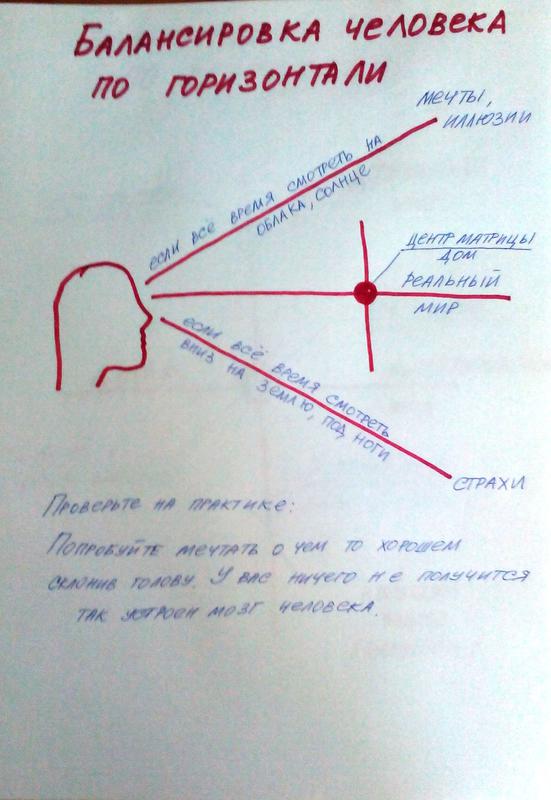 Балансировка человека
по горизонтали
мечты,
иллюзии
если всё время смотреть на
облака, солнце
центр матрицы
дом
реальный
мир
если всё время смотреть
вниз на землю, под ноги
страхи
Проверьте на практике:
Попробуйте мечтать о чем то хорошем
склонив голову. У вас ничего не получится
так устроен мозг человека.